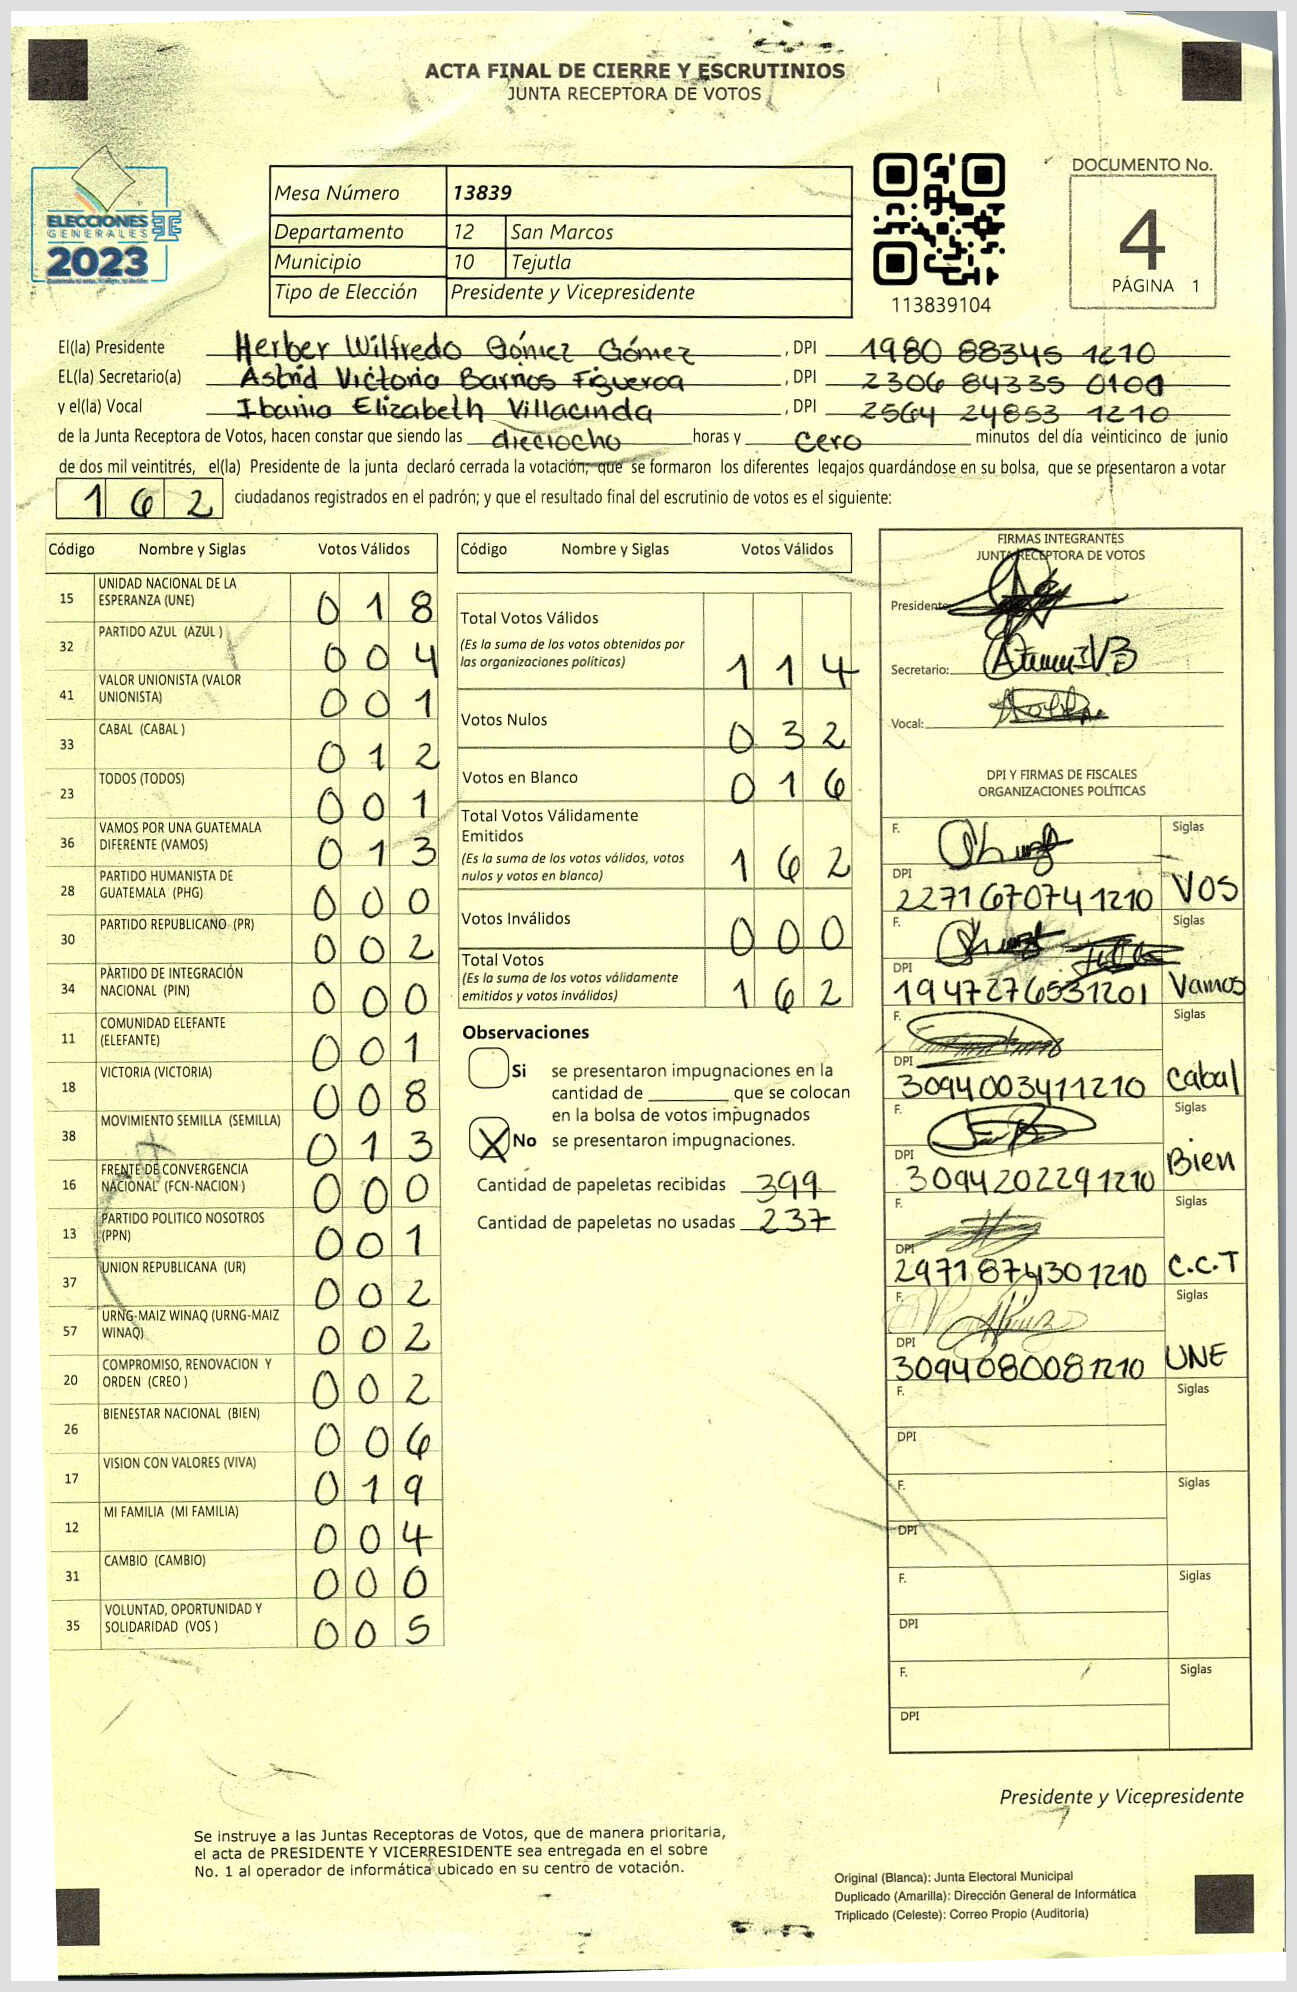 ACTA FINAL DE CIERRE Y ESCRUTINIOS
JUNTA RECEPTORA DE VOTOS
ELECCIONES
GENERALES
2023
Mesa Número 13839
Departamento 12 San Marcos
Municipio 10 Tejutla
Tipo de Elección Presidente y Vicepresidente
113839104
DOCUMENTO No.
4
PÁGINA 1
El(la) Presidente Herber Wilfredo Gómez Gómez , DPI 1980 88345 1210
EL(la) Secretario(a) Astrid Victoria Barrios Figueroa , DPI 2306 84335 0101
y el(la) Vocal Ibania Elizabeth Villacinda , DPI 2564 24853 1210
de la Junta Receptora de Votos, hacen constar que siendo las dieciocho horas y cero minutos del día veinticinco de junio
de dos mil veintitrés, el(la) Presidente de la junta declaró cerrada la votación; que se formaron los diferentes legajos quardándose en su bolsa, que se presentaron a votar
162 ciudadanos registrados en el padrón; y que el resultado final del escrutinio de votos es el siguiente:
Código Nombre y Siglas Votos Válidos
15 UNIDAD NACIONAL DE LA ESPERANZA (UNE) 018
32 PARTIDO AZUL (AZUL ) 004
41 VALOR UNIONISTA (VALOR UNIONISTA) 001
33 CABAL (CABAL ) 012
23 TODOS (TODOS) 001
36 VAMOS POR UNA GUATEMALA DIFERENTE (VAMOS) 013
28 PARTIDO HUMANISTA DE GUATEMALA (PHG) 000
30 PARTIDO REPUBLICANO (PR) 002
34 PARTIDO DE INTEGRACIÓN NACIONAL (PIN) 000
11 COMUNIDAD ELEFANTE (ELEFANTE) 001
18 VICTORIA (VICTORIA) 008
38 MOVIMIENTO SEMILLA (SEMILLA) 013
16 FRENTE DE CONVERGENCIA NACIONAL (FCN-NACION ) 000
13 PARTIDO POLITICO NOSOTROS (PPN) 001
37 UNION REPUBLICANA (UR) 002
57 URNG-MAIZ WINAQ (URNG-MAIZ WINAQ) 002
20 COMPROMISO, RENOVACION Y ORDEN (CREO ) 002
26 BIENESTAR NACIONAL (BIEN) 006
17 VISION CON VALORES (VIVA) 019
12 MI FAMILIA (MI FAMILIA) 004
31 CAMBIO (CAMBIO) 000
35 VOLUNTAD, OPORTUNIDAD Y SOLIDARIDAD (VOS ) 005
Código Nombre y Siglas Votos Válidos
Total Votos Válidos
(Es la suma de los votos obtenidos por
las organizaciones políticas) 114
Votos Nulos 032
Votos en Blanco 016
Total Votos Válidamente
Emitidos
(Es la suma de los votos válidos, votos
nulos y votos en blanco) 162
Votos Inválidos 000
Total Votos
(Es la suma de los votos válidamente
emitidos y votos inválidos) 162
Observaciones
Si se presentaron impugnaciones en la
cantidad de ________ que se colocan
en la bolsa de votos impugnados
X No se presentaron impugnaciones.
Cantidad de papeletas recibidas 399
Cantidad de papeletas no usadas 237
FIRMAS INTEGRANTES
JUNTA RECEPTORA DE VOTOS
Presidente:
Secretario:
Vocal:
DPI Y FIRMAS DE FISCALES
ORGANIZACIONES POLÍTICAS
F. Siglas
DPI 2271670741210 VOS
F. Siglas
DPI 1947276531201 Vamos
F. Siglas
DPI 3094003411210 Cabal
F. Siglas
DPI 3094202291210 Bien
F. Siglas
DPI 2971874301210 C.C.T
F. Siglas
DPI 3094080081210 UNE
F. Siglas
DPI
F. Siglas
DPI
F. Siglas
DPI
F. Siglas
DPI
Presidente y Vicepresidente
Se instruye a las Juntas Receptoras de Votos, que de manera prioritaria,
el acta de PRESIDENTE Y VICERRESIDENTE sea entregada en el sobre
No. 1 al operador de informática ubicado en su centro de votación.
Original (Blanca): Junta Electoral Municipal
Duplicado (Amarilla): Dirección General de Informática
Triplicado (Celeste): Correo Propio (Auditoria)